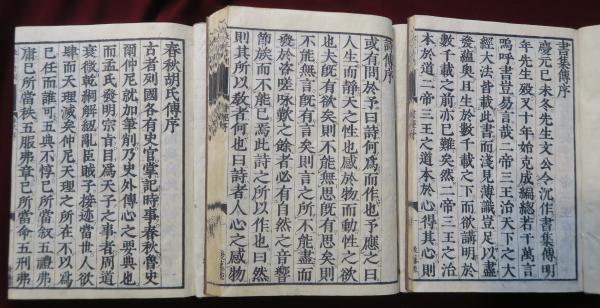 書集傳序
慶元己未冬先生文公令沉作書集傳明
年先生歿又十年始克成編總若干萬言
嗚呼書豈易言哉二帝三王治天下之大
經大法皆載此書而淺見薄識豈足以盡
發蘊奧且生於數千載之下而欲講明於
數千載之前亦已難矣然二帝三王之治
本於道二帝三王之道本於心得其心則
詩傳序
或有問於予曰詩何爲而作也予應之曰
人生而静天之性也感於物而動性之欲
也夫旣有欲矣則不能無思旣有思矣則
不能無言旣有言矣則言之所不能盡而
發於咨嗟咏歎之餘者必有自然之音響
節族而不能已焉此詩之所以作也曰然
則其所以教者何也曰詩者人心之感物
春秋胡氏傳序
古者列國各有史官掌記時事春秋魯史
爾仲尼就加筆削乃史外傳心之要典也
而孟氏發明宗旨目爲天子之事者周道
衰微乾綱解紐亂臣賊子接迹當世人欲
肆而天理滅矣仲尼天理之所在不以爲
己任而誰可五典不惇己所當叙五禮弗
庸己所當秩五服弗章己所當命五刑弗